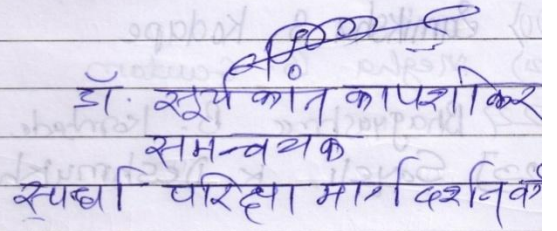 डॉ. सूर्यकांत कापशीकर
समन्वयक
स्पर्धा परिक्षा मार्गदर्शन